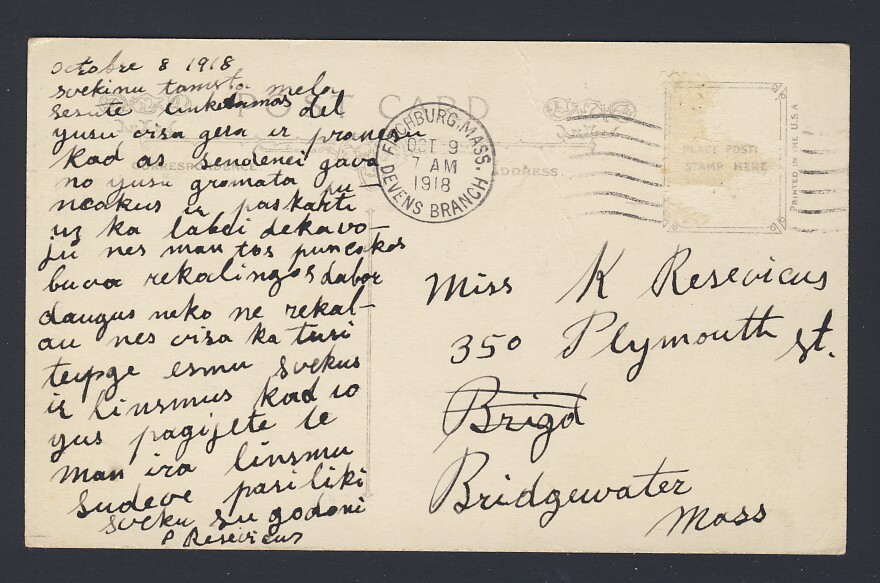 Octobre 8 1918
svekinu tamsta mela
sesute linketamas del
yusu visa gera ir pranesu
kad as sendenei gava
no yusu gromata pu-
ncakus ir paskarti
uz ka labei dekavo-
ju nes man tos puncakos
buva rekalingos dabar
daugus neko ne rekal-
au nes visa ka turi
teipge esmu svekus
ir linsmus kad io
yus pagijete te
man ira linsmu
sudeve pasiliki
sveku su godoni
P Resevicus
POST CARD
CORRESPONDENCE
ADDRESS
FITCHBURG, MASS.
OCT 9
7 AM
1918
DEVENS BRANCH
PLACE POST
STAMP HERE
PRINTED IN THE U.S.A
Miss K Resevicus
350 Plymouth st.
Brigd
Bridgewater
Mass